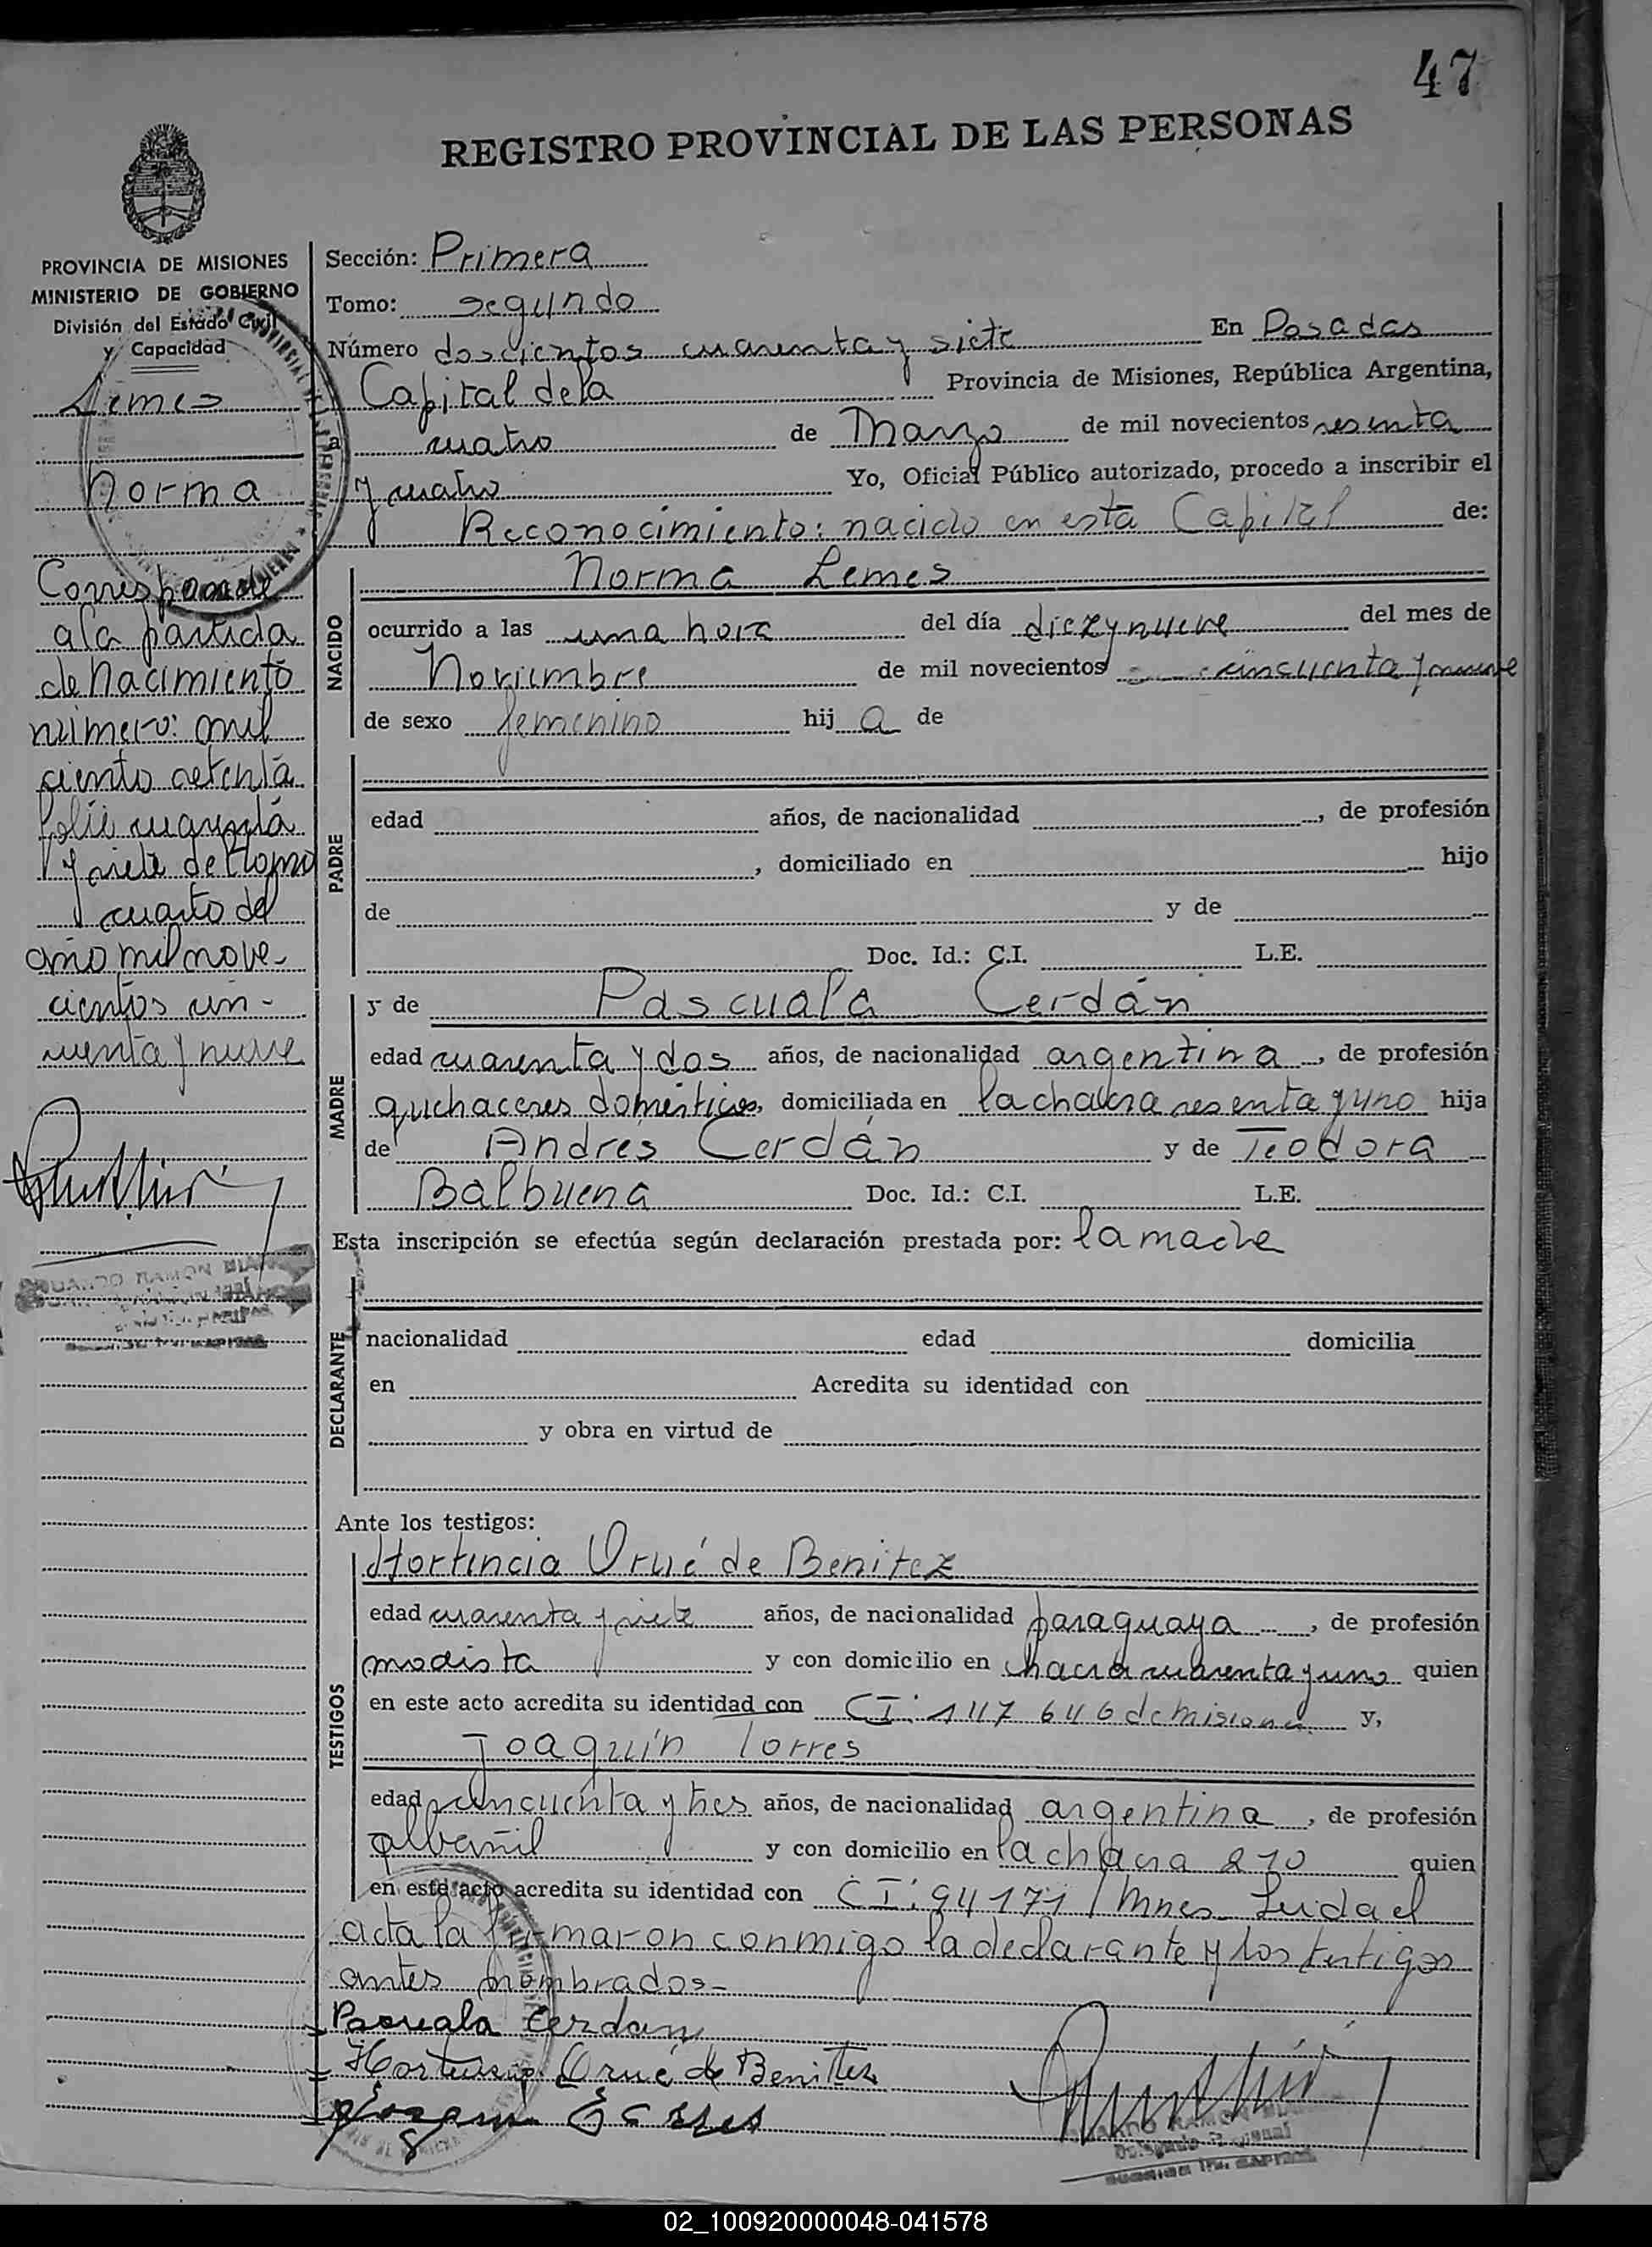 47
REGISTRO PROVINCIAL DE LAS PERSONAS
PROVINCIA DE MISIONES
MINISTERIO DE GOBIERNO
División del Estado Civil
y Capacidad
Lemes
Norma
Corresponde
a la partida
de Nacimiento
número: mil
ciento setenta
folio cuarenta
y siete del tomo
cuarto del
año mil nove-
cientos cin-
cuenta y nueve
Sección: Primera
Tomo: segundo
Número doscientos cuarenta y siete En Posadas
Capital de la Provincia de Misiones, República Argentina,
a cuatro de Marzo de mil novecientos sesenta
y cuatro Yo, Oficial Público autorizado, procedo a inscribir el
Reconocimiento: nacido en esta Capital de:
NACIDO
Norma Lemes
ocurrido a las una hora del día diez y nueve del mes de
Noviembre de mil novecientos cincuenta y nueve
de sexo femenino hij a de
PADRE
edad años, de nacionalidad , de profesión
, domiciliado en hijo
de y de
Doc. Id.: C.I. L.E.
MADRE
y de Pascuala Cerdán
edad cuarenta y dos años, de nacionalidad argentina , de profesión
quehaceres domésticos, domiciliada en la chakra sesenta y uno hija
de Andrés Cerdán y de Teodora
Balbuena Doc. Id.: C.I. L.E.
Esta inscripción se efectúa según declaración prestada por: la madre
DECLARANTE
nacionalidad edad domicilia
en Acredita su identidad con
y obra en virtud de
Ante los testigos:
TESTIGOS
Hortencia Orué de Benitez
edad cuarenta y siete años, de nacionalidad paraguaya , de profesión
modista y con domicilio en chacra cuarenta y uno quien
en este acto acredita su identidad con CI: 117 646 de Misiones y,
Joaquín Torres
edad cincuenta y tres años, de nacionalidad argentina , de profesión
albañil y con domicilio en la chacra 210 quien
en este acto acredita su identidad con CI: 94171 / Mnes Leida el
acta la firmaron conmigo la declarante y los testigos
antes nombrados-
Pascuala Cerdan
Hortencia Orué de Benitez
02_100920000048-041578